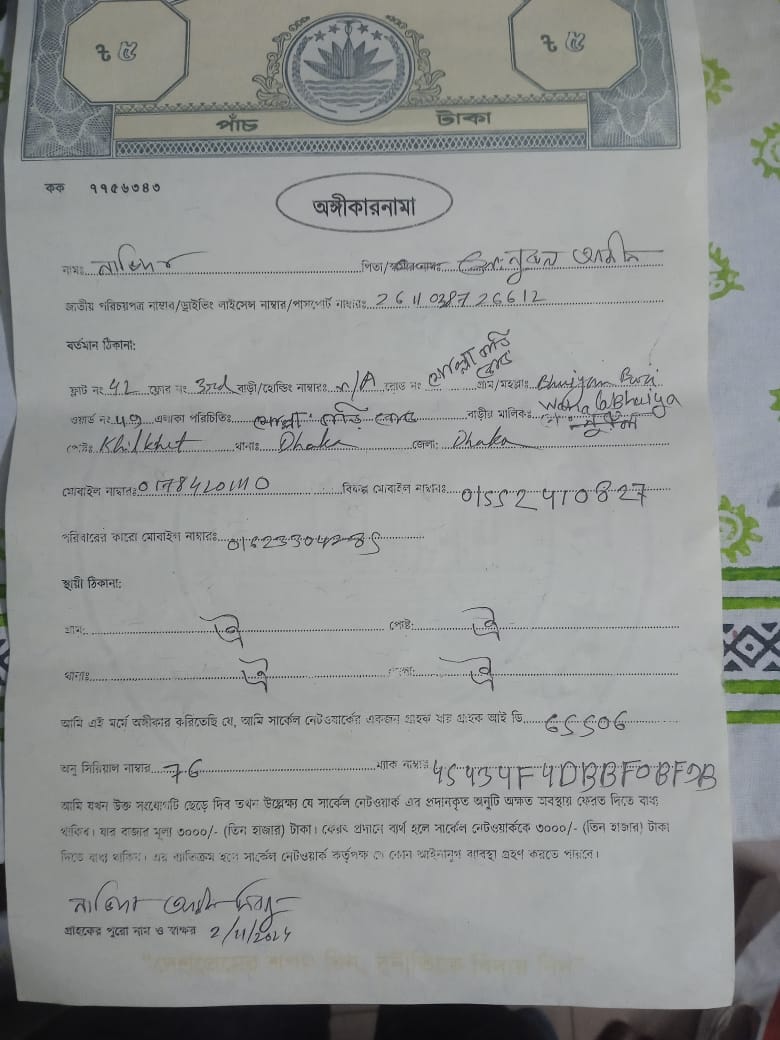 ৳ ৫
৳ ৫
পাঁচ টাকা
কক ৭৭৫৬৩৪৩
অঙ্গীকারনামা
নামঃ পিতা/স্বামীর নামঃ
জাতীয় পরিচয়পত্র নাম্বার/ড্রাইভিং লাইসেন্স নাম্বার/পাসপোর্ট নাম্বারঃ 2611038726612
বর্তমান ঠিকানা:
ফ্লাট নং 42 ফ্লোর নং 3rd বাড়ী/হোল্ডিং নাম্বারঃ N/A রোড নং গ্রাম/মহল্লাঃ Bhuiyan Bari
ওয়ার্ড নং এলাকা পরিচিতিঃ বাড়ীর মালিকঃ Bhuiya
পোষ্টঃ Khilkhet থানাঃ Dhaka জেলা: Dhaka
মোবাইল নাম্বারঃ বিকল্প মোবাইল নাম্বারঃ 01552410827
পরিবারের কারো মোবাইল নাম্বারঃ
স্থায়ী ঠিকানা:
গ্রাম: ঐ পোষ্ট: ঐ
থানাঃ ঐ জেলা: ঐ
আমি এই মর্মে অঙ্গীকার করিতেছি যে, আমি সার্কেল নেটওয়ার্কের একজন গ্রাহক যার গ্রাহক আই ডি 65506
অনু সিরিয়াল নাম্বার 76 ম্যাক নাম্বার 45434F4DBBF0BF9B
আমি যখন উক্ত সংযোগটি ছেড়ে দিব তখন উল্লেক্ষ যে সার্কেল নেটওয়ার্ক এর প্রদানকৃত অনুটি অক্ষত অবস্থায় ফেরত দিতে বাধ্য
থাকিব। যার বাজার মূল্য ৩০০০/- (তিন হাজার) টাকা। ফেরৎ প্রদানে ব্যর্থ হলে সার্কেল নেটওয়ার্ককে ৩০০০/- (তিন হাজার) টাকা
দিতে বাধ্য থাকিব। এর ব্যতিক্রম হলে সার্কেল নেটওয়ার্ক কর্তৃপক্ষ যে কোন আইনানুগ ব্যবস্থা গ্রহণ করতে পারবে।
গ্রাহকের পুরো নাম ও স্বাক্ষর 2/11/2024